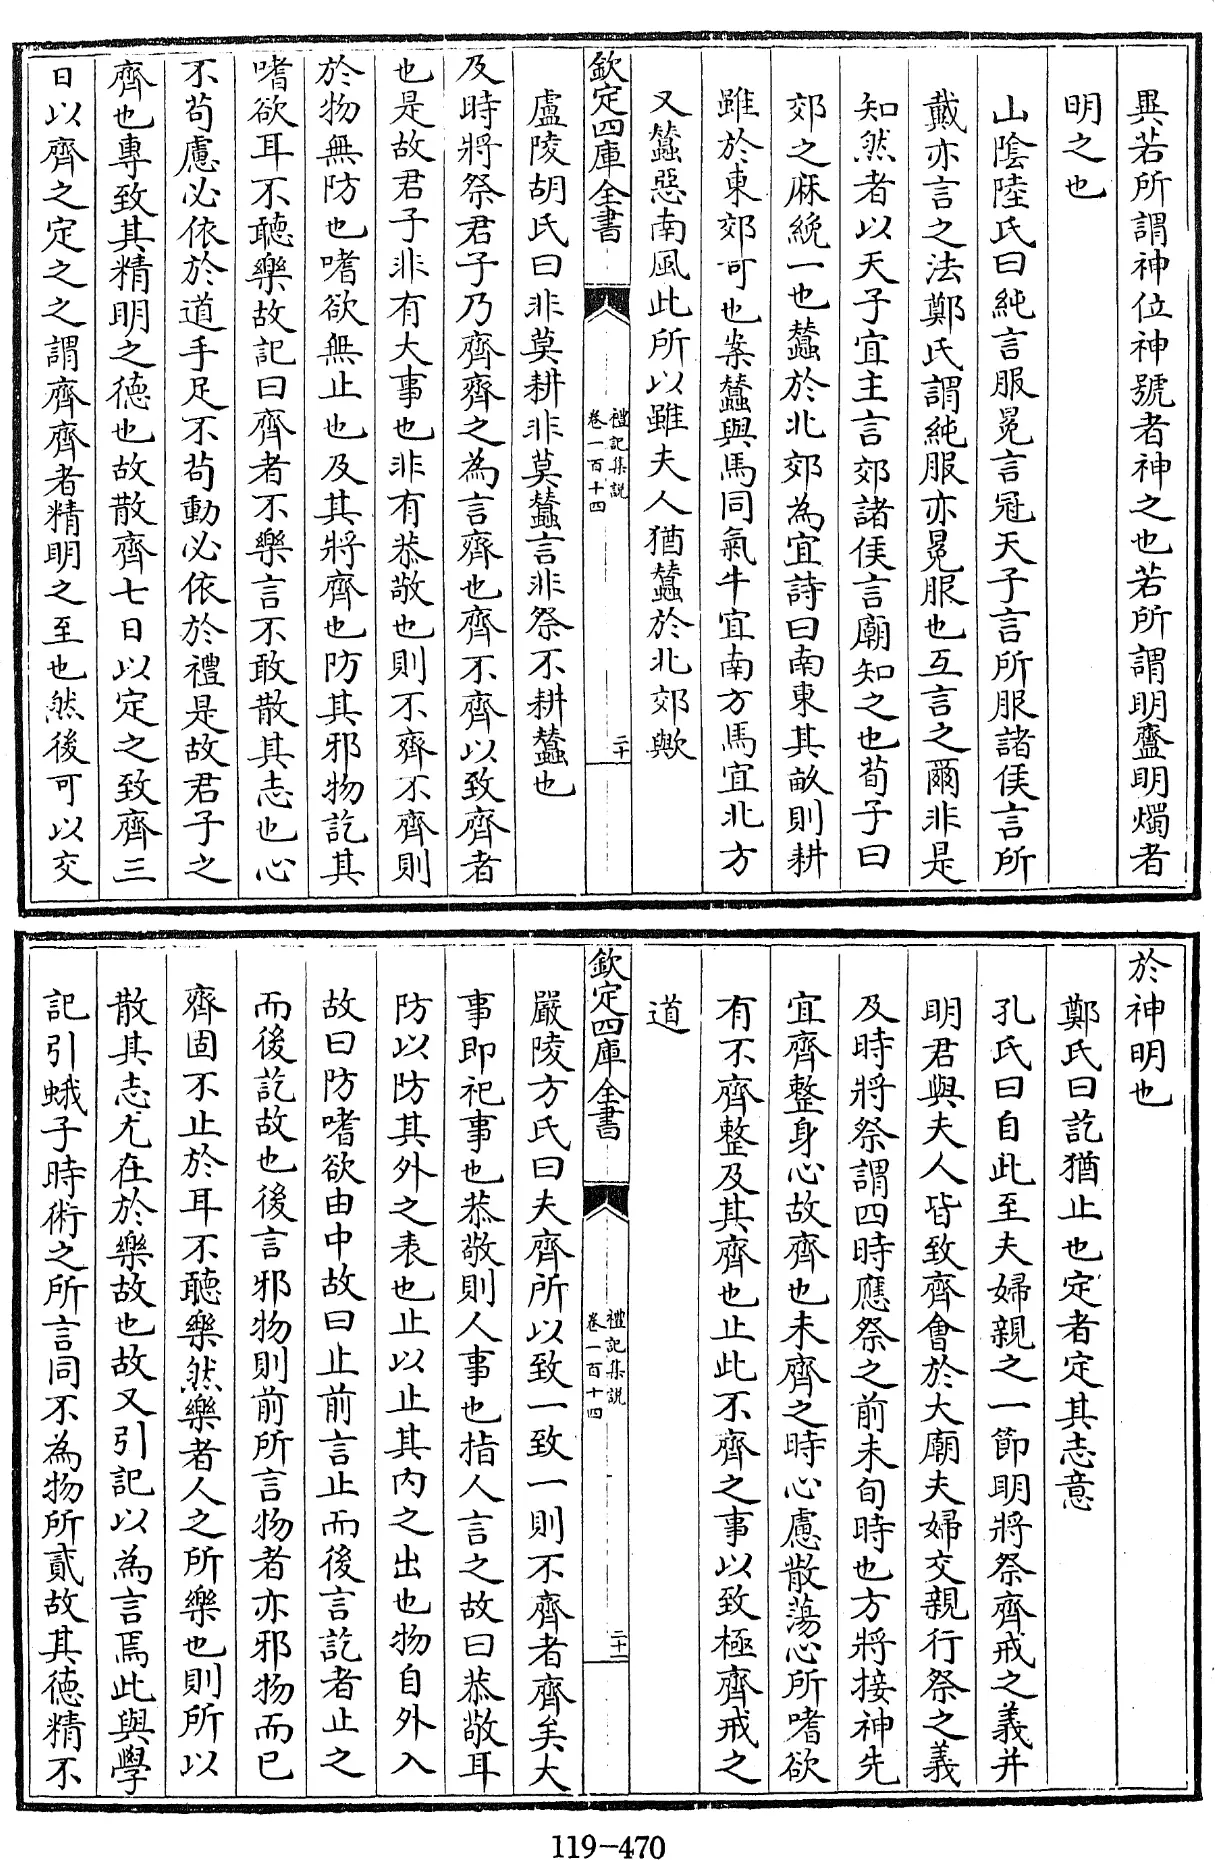 異若所謂神位神號者神之也若所謂明齍明燭者
明之也
山隂陸氏曰純言服冕言冠天子言所服諸侯言所
戴亦言之法鄭氏謂純服亦冕服也互言之爾非是
知然者以天子宜主言郊諸侯言廟知之也荀子曰
郊之麻絻一也蠶於北郊為宜詩曰南東其畝則耕
雖於東郊可也案蠶與馬同氣牛宜南方馬宜北方
又蠶惡南風此所以雖夫人猶蠶於北郊歟
欽定四庫全書
禮記集説
卷一百十四
二十
盧陵胡氏曰非莫耕非莫蠶言非祭不耕蠶也
及時將祭君子乃齊齊之為言齊也齊不齊以致齊者
也是故君子非有大事也非有恭敬也則不齊不齊則
於物無防也嗜欲無止也及其將齊也防其邪物訖其
嗜欲耳不聽樂故記曰齊者不樂言不敢散其志也心
不苟慮必依於道手足不苟動必依於禮是故君子之
齊也專致其精明之德也故散齊七日以定之致齊三
日以齊之定之之謂齊齊者精明之至也然後可以交
於神明也
鄭氏曰訖猶止也定者定其志意
孔氏曰自此至夫婦親之一節明將祭齊戒之義并
明君與夫人皆致齊會於大廟夫婦交親行祭之義
及時將祭謂四時應祭之前未旬時也方將接神先
宜齊整身心故齊也未齊之時心慮散蕩心所嗜欲
有不齊整及其齊也止此不齊之事以致極齊戒之
道
欽定四庫全書
禮記集説
卷一百十四
二十一
嚴陵方氏曰夫齊所以致一致一則不齊者齊矣大
事即祀事也恭敬則人事也指人言之故曰恭敬耳
防以防其外之表也止以止其内之出也物自外入
故曰防嗜欲由中故曰止前言止而後言訖者止之
而後訖故也後言邪物則前所言物者亦邪物而已
齊固不止於耳不聽樂然樂者人之所樂也則所以
散其志尤在於樂故也故又引記以為言焉此與學
記引蛾子時術之所言同不為物所貳故其徳精不
119-470